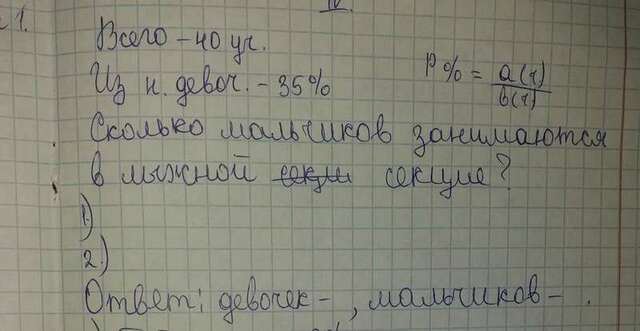 1.
Всего – 40 уч.
Из н. девоч. – 35%
P% = a(г)
b(г)
Сколько мальчиков занимаются
в лыжной секции?
1)
2.)
Ответ: девочек – , мальчиков – .